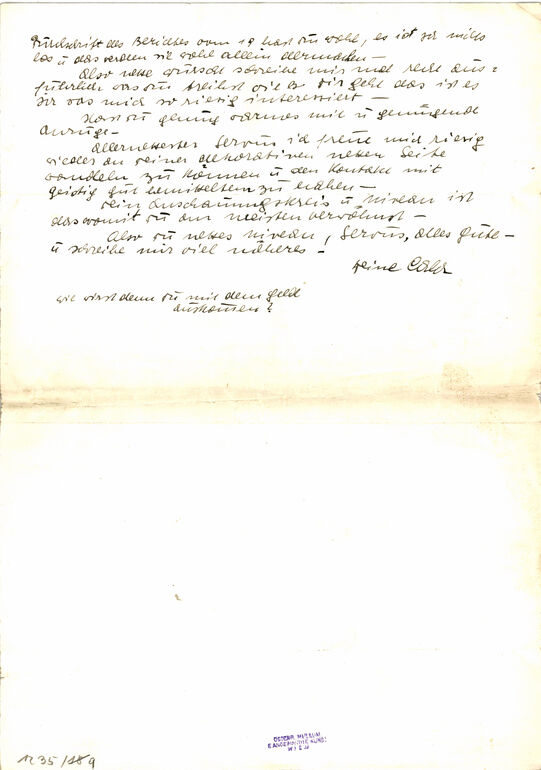 Durchschrift des Berichtes vom 19 hast du wohl, es ist ja nichts
los u das werden sie wohl allein
Also nette Wurscht schreibe mir mal recht aus=
führlich was du treibst wie es dir geht das ist es
ja was mich so riesig interessiert —
Hast du genug warmes mit u genügend
Anzüge —
Allernettester Servus ich freue mich riesig
wieder an deiner dekorativen netten Seite
wandeln zu können u den Kontakt mit
geistig gut bemittelten zu
Dein Anschauungskreis u Niveau ist
das womit du am meisten verwöhnst —
Also du nettes Niveau, Servus, alles Gute —
u schreibe mir viel näheres —
Deine
wie wirst denn du mit dem Geld
auskommen?
1235/189
ÖSTERR. MUSEUM
F. ANGEWANDTE KUNST
WIEN